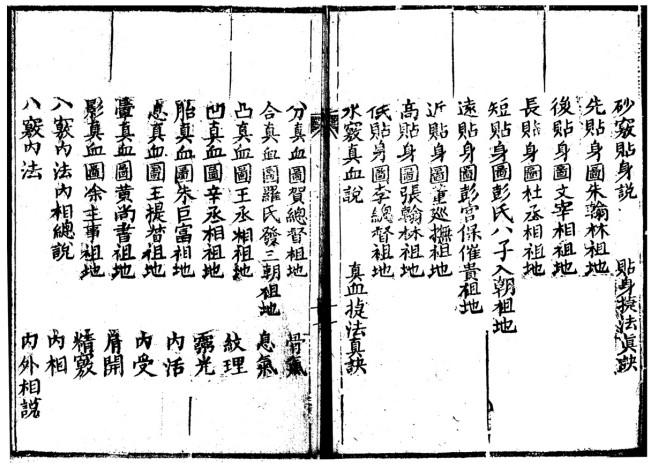 砂竅貼身說 貼身捷法眞訣
先貼身圖朱翰林祖地
後貼身圖文宰相祖地
長貼身圖杜丞相祖地
短貼身圖彭氏八子入朝祖地
遠貼身圖彭宮保催貴祖地
近貼身圖董巡撫祖地
高貼身圖張翰林祖地
低貼身圖李總督祖地
水竅真血說 真血捷法真訣
分真血圖賀總督祖地 骨氣
合真血圖羅氏發三朝祖地 息氣
凸真血圖王丞相祖地 紋理
凹真血圖辛丞相祖地 弼光
胎真血圖朱巨富祖地 內活
息真血圖王提督祖地 內受
真血圖黃尚書祖地 眉開
影真血圖余主事祖地 精竅
八竅內法內相總說 內相
八竅內法 內外相說